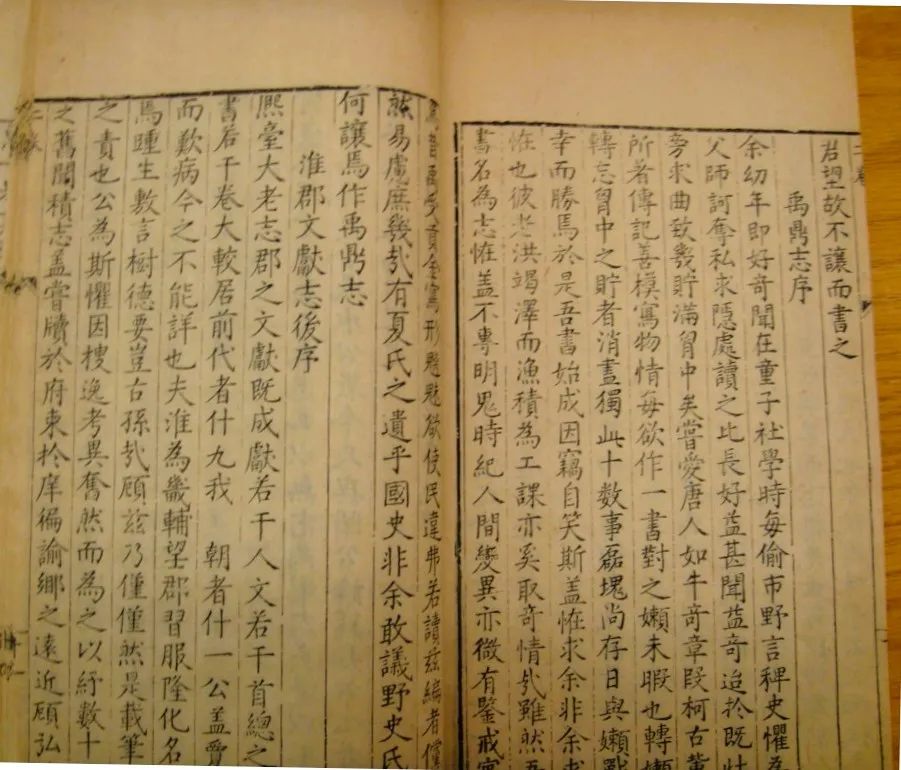 君望故不讓而書之
禹鼎志序
余幼年即好奇聞在童子社學時每偷市野言稗史懼為
父師訶奪私求隱處讀之比長好益甚聞益奇迨於既壯
旁求曲致幾貯滿胷中矣嘗愛唐人如牛奇章段柯古輩
所著傳記善模寫物情每欲作一書對之嬾未暇也轉嬾
轉忘胷中之貯者消盡獨此十數事磊塊尚存日與嬾戰
幸而勝焉於是吾書始成因竊自笑斯蓋怪求余非余求
怪也彼老洪竭澤而漁積為工課亦奚取奇情哉雖然吾
書名為志怪蓋不專明鬼時紀人間變異亦微有鑒戒寓
形魑魅欲使民違弗若讀茲編者儻
然易慮庶幾哉有夏氏之遺乎國史非余敢議野史氏
何讓焉作禹鼎志
淮郡文獻志後序
熈臺大老志郡之文獻既成獻若干人文若干首總之
書若干卷大較居前代者什九我 朝者什一公蓋覽
而歎病今之不能詳也夫淮為畿輔望郡習服隆化名
焉踵生數言樹德要豈古孫哉顧茲乃僅僅然是載筆
之責也公為斯懼因搜逸考異奮然而為之以紓數十
之舊聞積志蓋嘗牘於府東於庠徧諭鄉之遠近顧弘